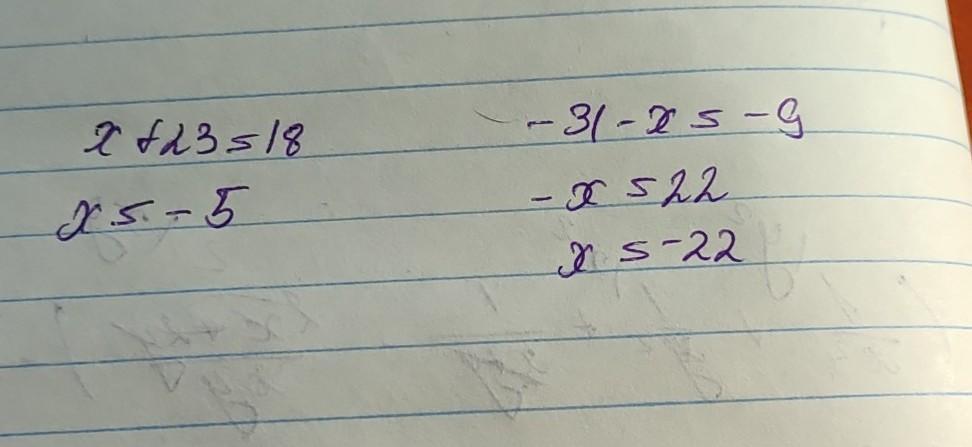 x + 23 = 18
x = - 5
- 31 - x = - 9
- x = 22
x = - 22